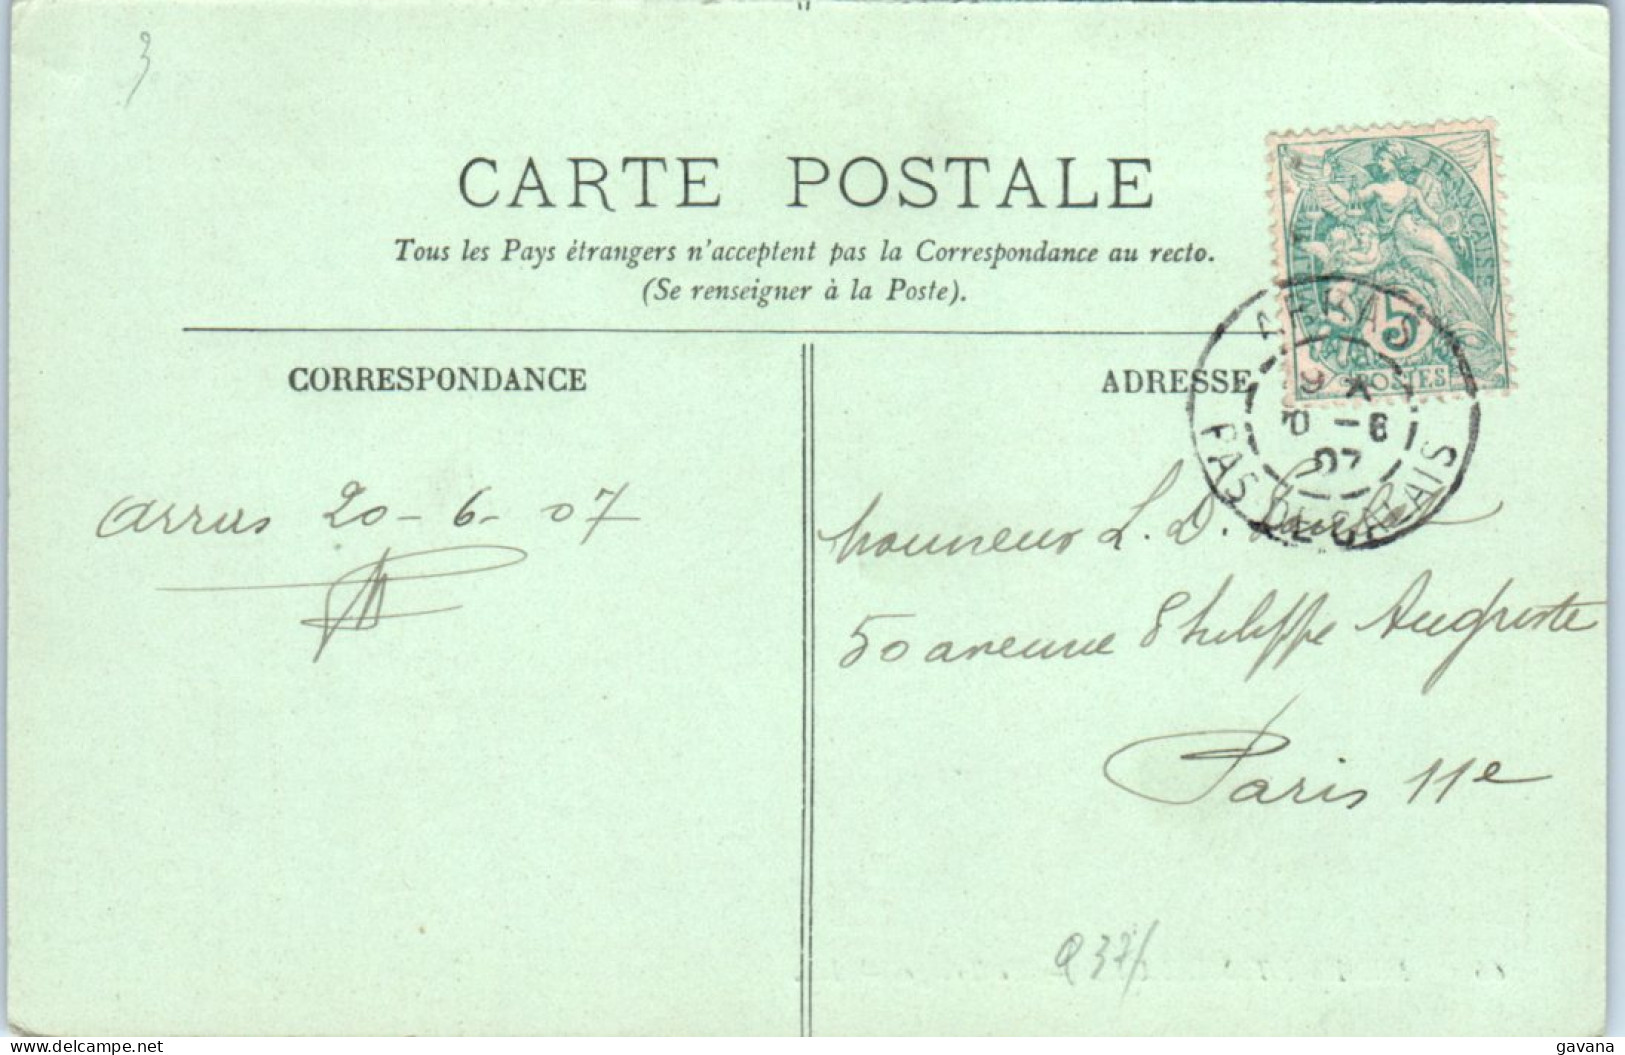 3
CARTE POSTALE
Tous les Pays étrangers n'acceptent pas la Correspondance au recto.
(Se renseigner à la Poste).
CORRESPONDANCE
ADRESSE
RÉPUBLIQUE FRANÇAISE
5
POSTES
ARRAS
20 -6
07
PAS DE CALAIS
Arras 20-6-07
Monsieur L. D.
50 avenue Philippe Auguste
Paris 11e
delcampe.net
gavana